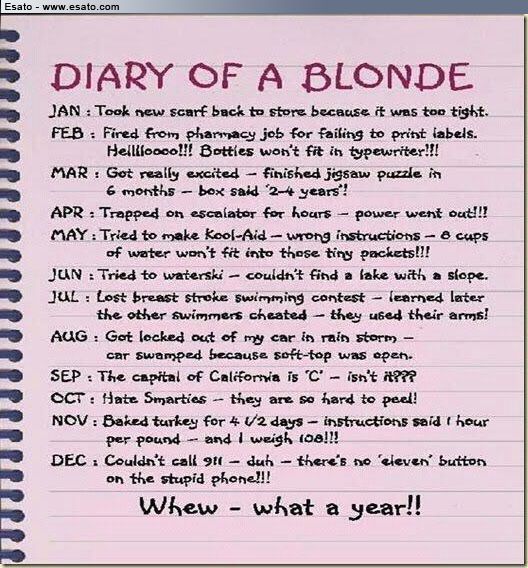 Esato - www.esato.com
DIARY OF A BLONDE
JAN : Took new scarf back to store because it was too tight.
FEB : Fired from pharmacy job for failing to print labels.
Helllloooo!!! Bottles won't fit in typewriter!!!
MAR : Got really excited – finished jigsaw puzzle in
6 months – box said '2-4 years'!
APR : Trapped on escalator for hours – power went out!!!
MAY : Tried to make Kool-Aid – wrong instructions – 8 cups
of water won't fit into those tiny packets!!!
JUN : Tried to waterski – couldn't find a lake with a slope.
JUL : Lost breast stroke swimming contest – learned later
the other swimmers cheated – they used their arms!
AUG : Got locked out of my car in rain storm –
car swamped because soft-top was open.
SEP : The capital of California is 'C' – isn't it???
OCT : Hate Smarties – they are so hard to peel!
NOV : Baked turkey for 4 1/2 days – instructions said 1 hour
per pound – and I weigh 108!!!
DEC : Couldn't call 911 – duh – there's no 'eleven' button
on the stupid phone!!!
Whew – what a year!!